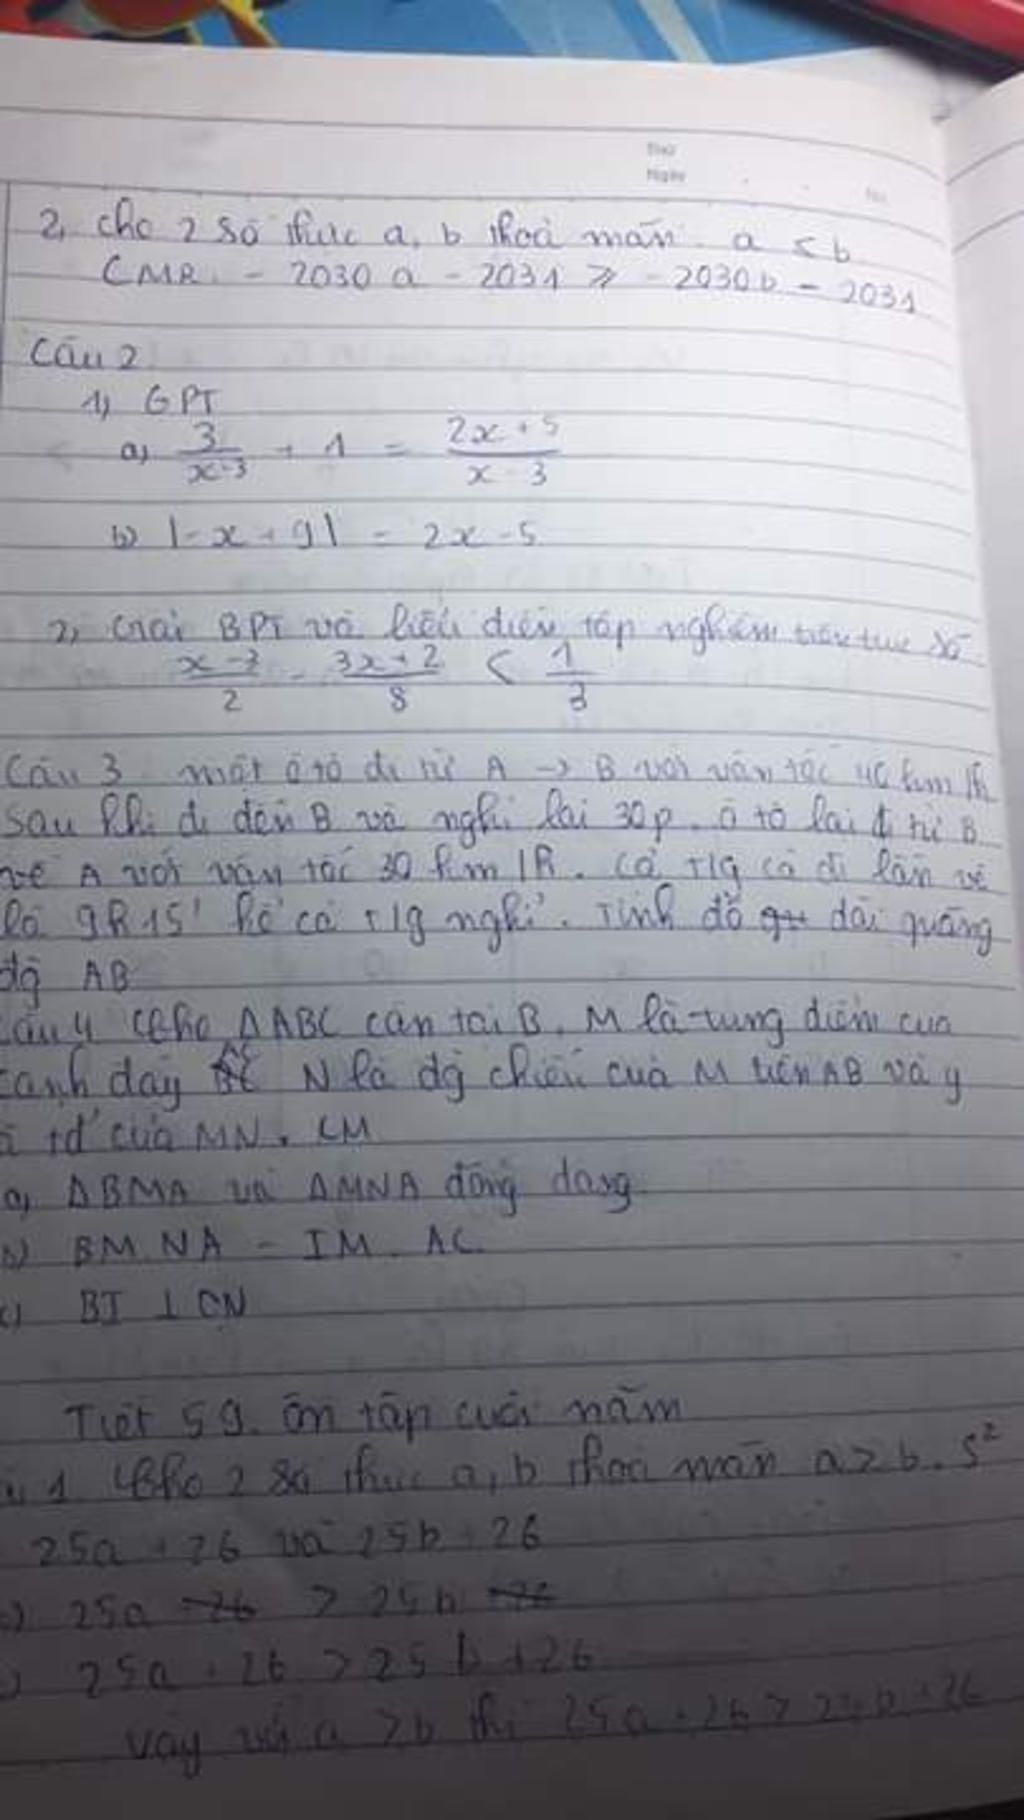 Thứ
Ngày
No.
2, cho 2 số thực a, b thoả mãn a ≤ b
CMR. - 2030 a - 2031 ≥ - 2030b - 2031
Câu 2
1, GPT
a, 3/(x-3) + 1 = (2x+5)/(x-3)
b) |-x+9| = 2x-5
2, Giải BPT và biểu diễn tập nghiệm trên trục số
(x-3)/2 - (3x+2)/8 < 1/3
Câu 3 một ô tô đi từ A → B với vận tốc 40 km/h
sau khi đi đến B và nghỉ lại 30p. ô tô lại đi từ B
về A với vận tốc 30 km/h. cả t/g cả đi lẫn về
là 9h15' kể cả t/g nghỉ. Tính độ dài quãng
đg AB
Câu 4 Cho ΔABC cân tại B, M là trung điểm của
cạnh đáy AC N là dg chiếu của M trên AB và y
là td của MN. CM
a, ΔBMA và ΔMNA đồng dạng
b) BM.NA = IM.AC
c) BI ⊥ CN
Tiết 59. Ôn tập cuối năm
1 Cho 2 số thực a, b thoả mãn a > b. S²
25a + 26 và 25b + 26
25a > 25b
25a + 26 > 25b + 26
Vậy với a > b thì 25a + 26 > 25b + 26